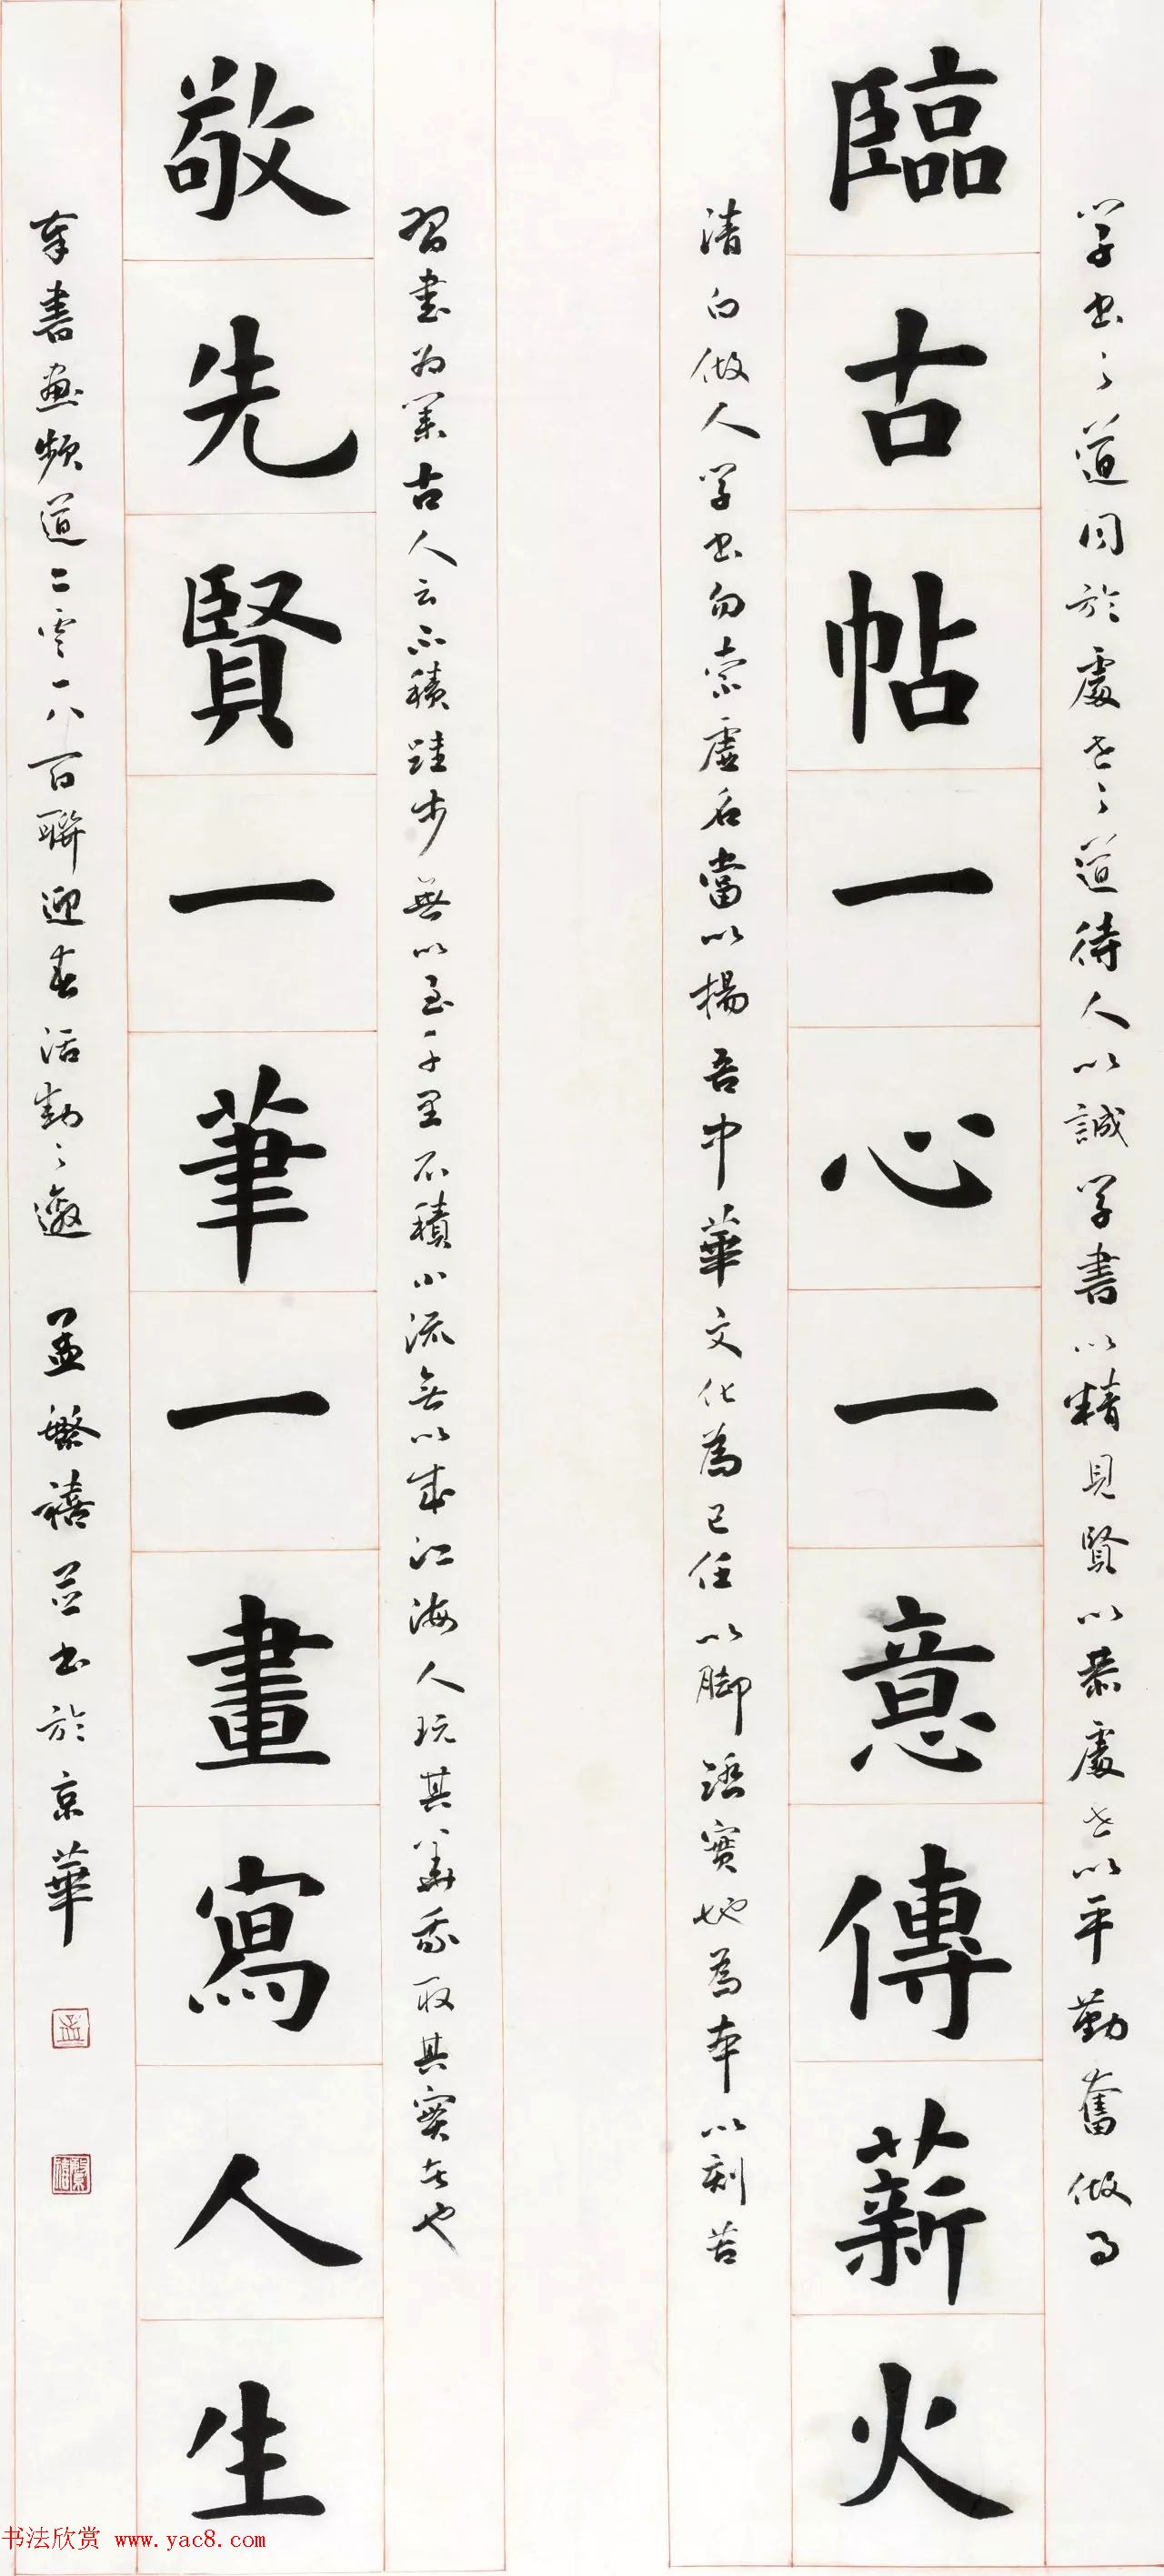 學書之道同於處世之道待人以誠學書以精見賢以恭處世以平勤奮做事
臨古帖一心一意傳薪火
清白做人學書勿索虛名當以揚吾中華文化為己任以脚踏實地為本以刻苦
習書為業古人云不積跬步無以至千里不積小流無以成江海人玩其華我取其實是也
敬先賢一筆一畫寫人生
奉書畫頻道二零一八百聯迎春活動之邀 孟繁禧並書於京華
孟
繁禧
书法欣赏 www.yac8.com